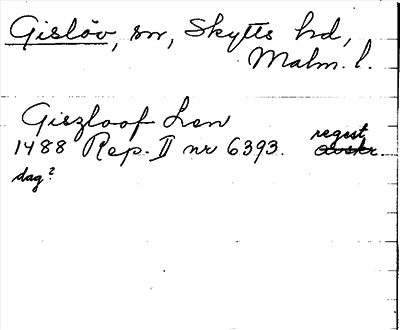 Gislöv, sn, Skytts hd,
Malm. l.
Giszloof Len
regest
1488 Rep. II nr 6393. avskr.
dag?